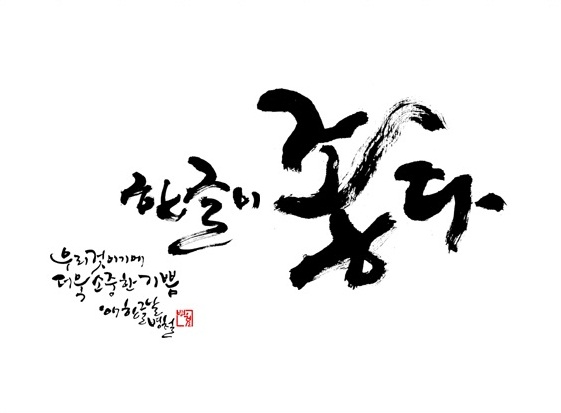 한글이 좋다
우리것이기에
더욱 소중한 기쁨
한글날
병철